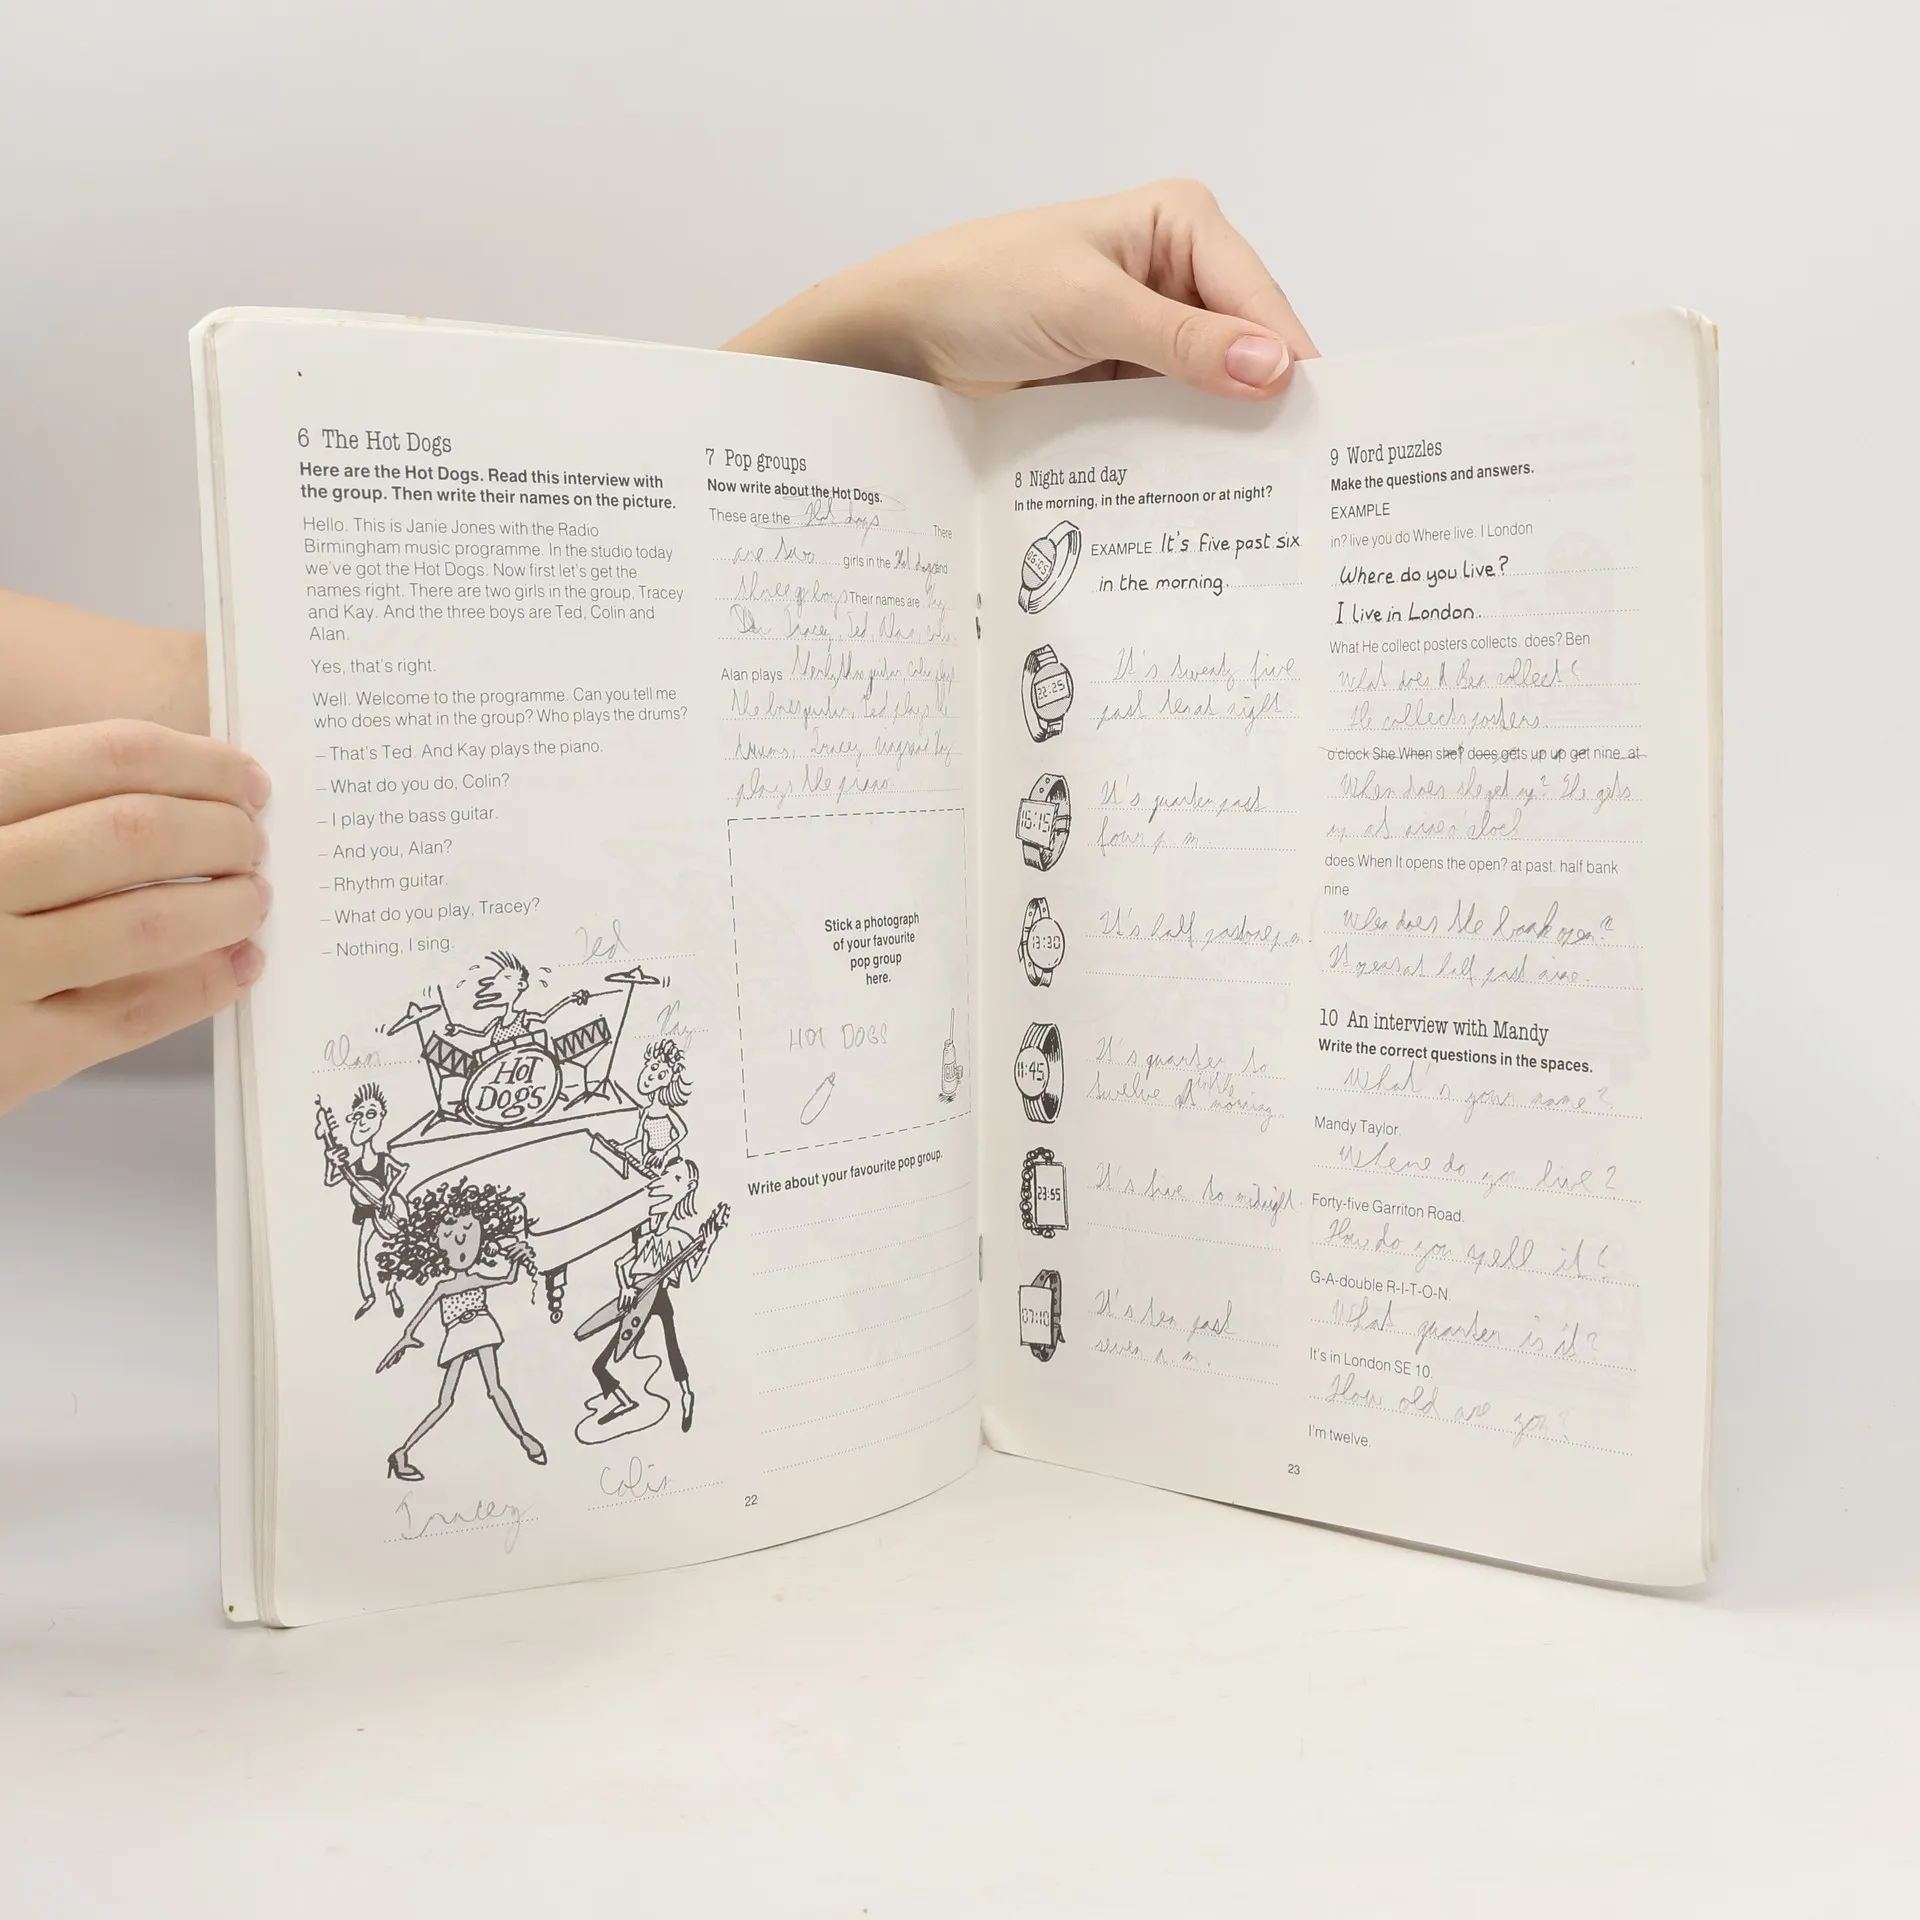 6 The Hot Dogs
Here are the Hot Dogs. Read this interview with
the group. Then write their names on the picture.
Hello. This is Janie Jones with the Radio
Birmingham music programme. In the studio today
we've got the Hot Dogs. Now first let's get the
names right. There are two girls in the group, Tracey
and Kay. And the three boys are Ted, Colin and
Alan.
Yes, that's right.
Well. Welcome to the programme. Can you tell me
who does what in the group? Who plays the drums?
– That's Ted. And Kay plays the piano.
– What do you do, Colin?
– I play the bass guitar.
– And you, Alan?
– Rhythm guitar.
– What do you play, Tracey?
– Nothing, I sing.
Ted
Kay
Alan
HOT
DOGS
Colin
Tracey
22
7 Pop groups
Now write about the Hot Dogs.
These are the Hot dogs There
are two girls in the Hot dogs and
Their names are Kay
Tracey, Ted, Alan,
Alan plays guitar
the bass guitar, Ted plays the
Tracey
plays the piano.
Stick a photograph
of your favourite
pop group
here.
HOT DOGS
GLUE
Write about your favourite pop group.
8 Night and day
In the morning, in the afternoon or at night?
06:05
EXAMPLE It's five past six
in the morning.
22:25
It's twenty five
past ten at night.
16:15
It's quarter past
four p. m.
13:30
It's half past one p. m.
11:45
It's quarter to
twelve in the morning.
23:55
It's five to midnight.
07:10
It's ten past
seven a. m.
9 Word puzzles
Make the questions and answers.
EXAMPLE
in? live you do Where live. I London
Where do you live?
I live in London.
What He collect posters collects. does? Ben
What does Ben collect?
He collects posters.
o'clock She When she? does gets up up get nine. at
When does she get up? She gets
up at nine o'clock
does When It opens the open? at past. half bank
nine
When does the bank open?
It opens at half past nine.
10 An interview with Mandy
Write the correct questions in the spaces.
What's your name?
Mandy Taylor.
Where do you live?
Forty-five Garriton Road.
How do you spell it?
G-A-double R-I-T-O-N.
What quarter is it?
It's in London SE 10.
How old are you?
I'm twelve.
23